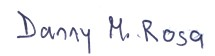 Danny M. Rosa